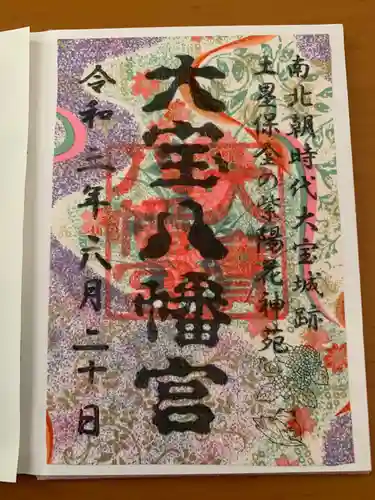 南北朝時代大宝城跡
土塁保全の紫陽花神苑
大宝八幡宮
令和二年六月二十日